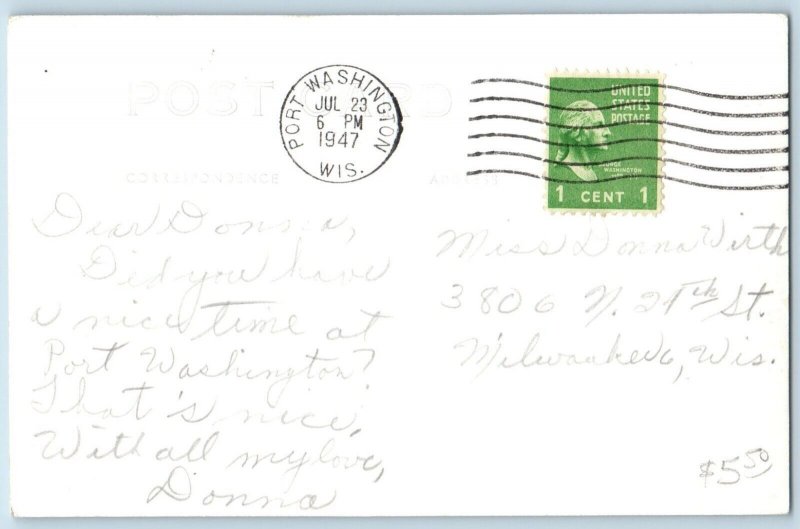 POST CARD
CORRESPONDENCE
ADDRESS
PORT WASHINGTON
JUL 23
6 PM
1947
WIS.
UNITED
STATES
POSTAGE
GEORGE
WASHINGTON
1 CENT 1
Dear Donna,
Did you have
a nice time at
Port Washington?
That's nice,
With all my love,
Donna
Miss Donna Wirth
3806 N. 27th St.
Milwaukee 6, Wis.
$5.50